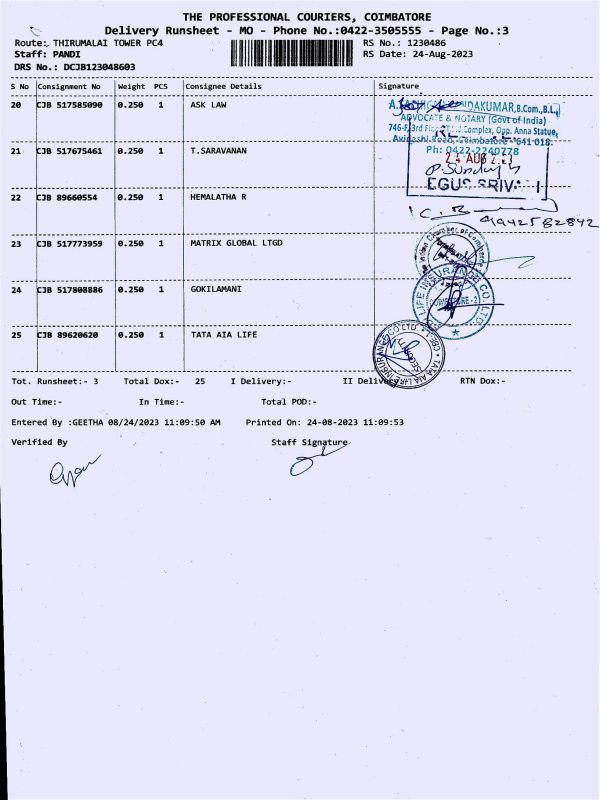 THE PROFESSIONAL COURIERS, COIMBATORE
Delivery Runsheet - MO - Phone No.:0422-3505555 - Page No.:3
Route: THIRUMALAI TOWER PC4 RS No.: 1230486
Staff: PANDI RS Date: 24-Aug-2023
DRS No.: DCJB123048603
S No Consignment No Weight PCS Consignee Details Signature
20 CJB 517585090 0.250 1 ASK LAW
NDAKUMAR,B.Com.,B.L.,
ADVOCATE & NOTARY (Govt of India)
746-F, 3rd Complex, Opp. Anna Statue,
Avinashi Road, Coimbatore - 641 018.
Ph: 0422-2240778
21 CJB 517675461 0.250 1 T.SARAVANAN
24 AUG 2023
22 CJB 89660554 0.250 1 HEMALATHA R
9942582842
23 CJB 517773959 0.250 1 MATRIX GLOBAL LTGD
24 CJB 517808886 0.250 1 GOKILAMANI
LIFE INSURANCE CO. LTD.
25 CJB 89620620 0.250 1 TATA AIA LIFE
TATA AIA LIFE INSURANCE CO LTD.
Tot. Runsheet:- 3 Total Dox:- 25 I Delivery:- II Delivery:- RTN Dox:-
Out Time:- In Time:- Total POD:-
Entered By :GEETHA 08/24/2023 11:09:50 AM Printed On: 24-08-2023 11:09:53
Verified By Staff Signature